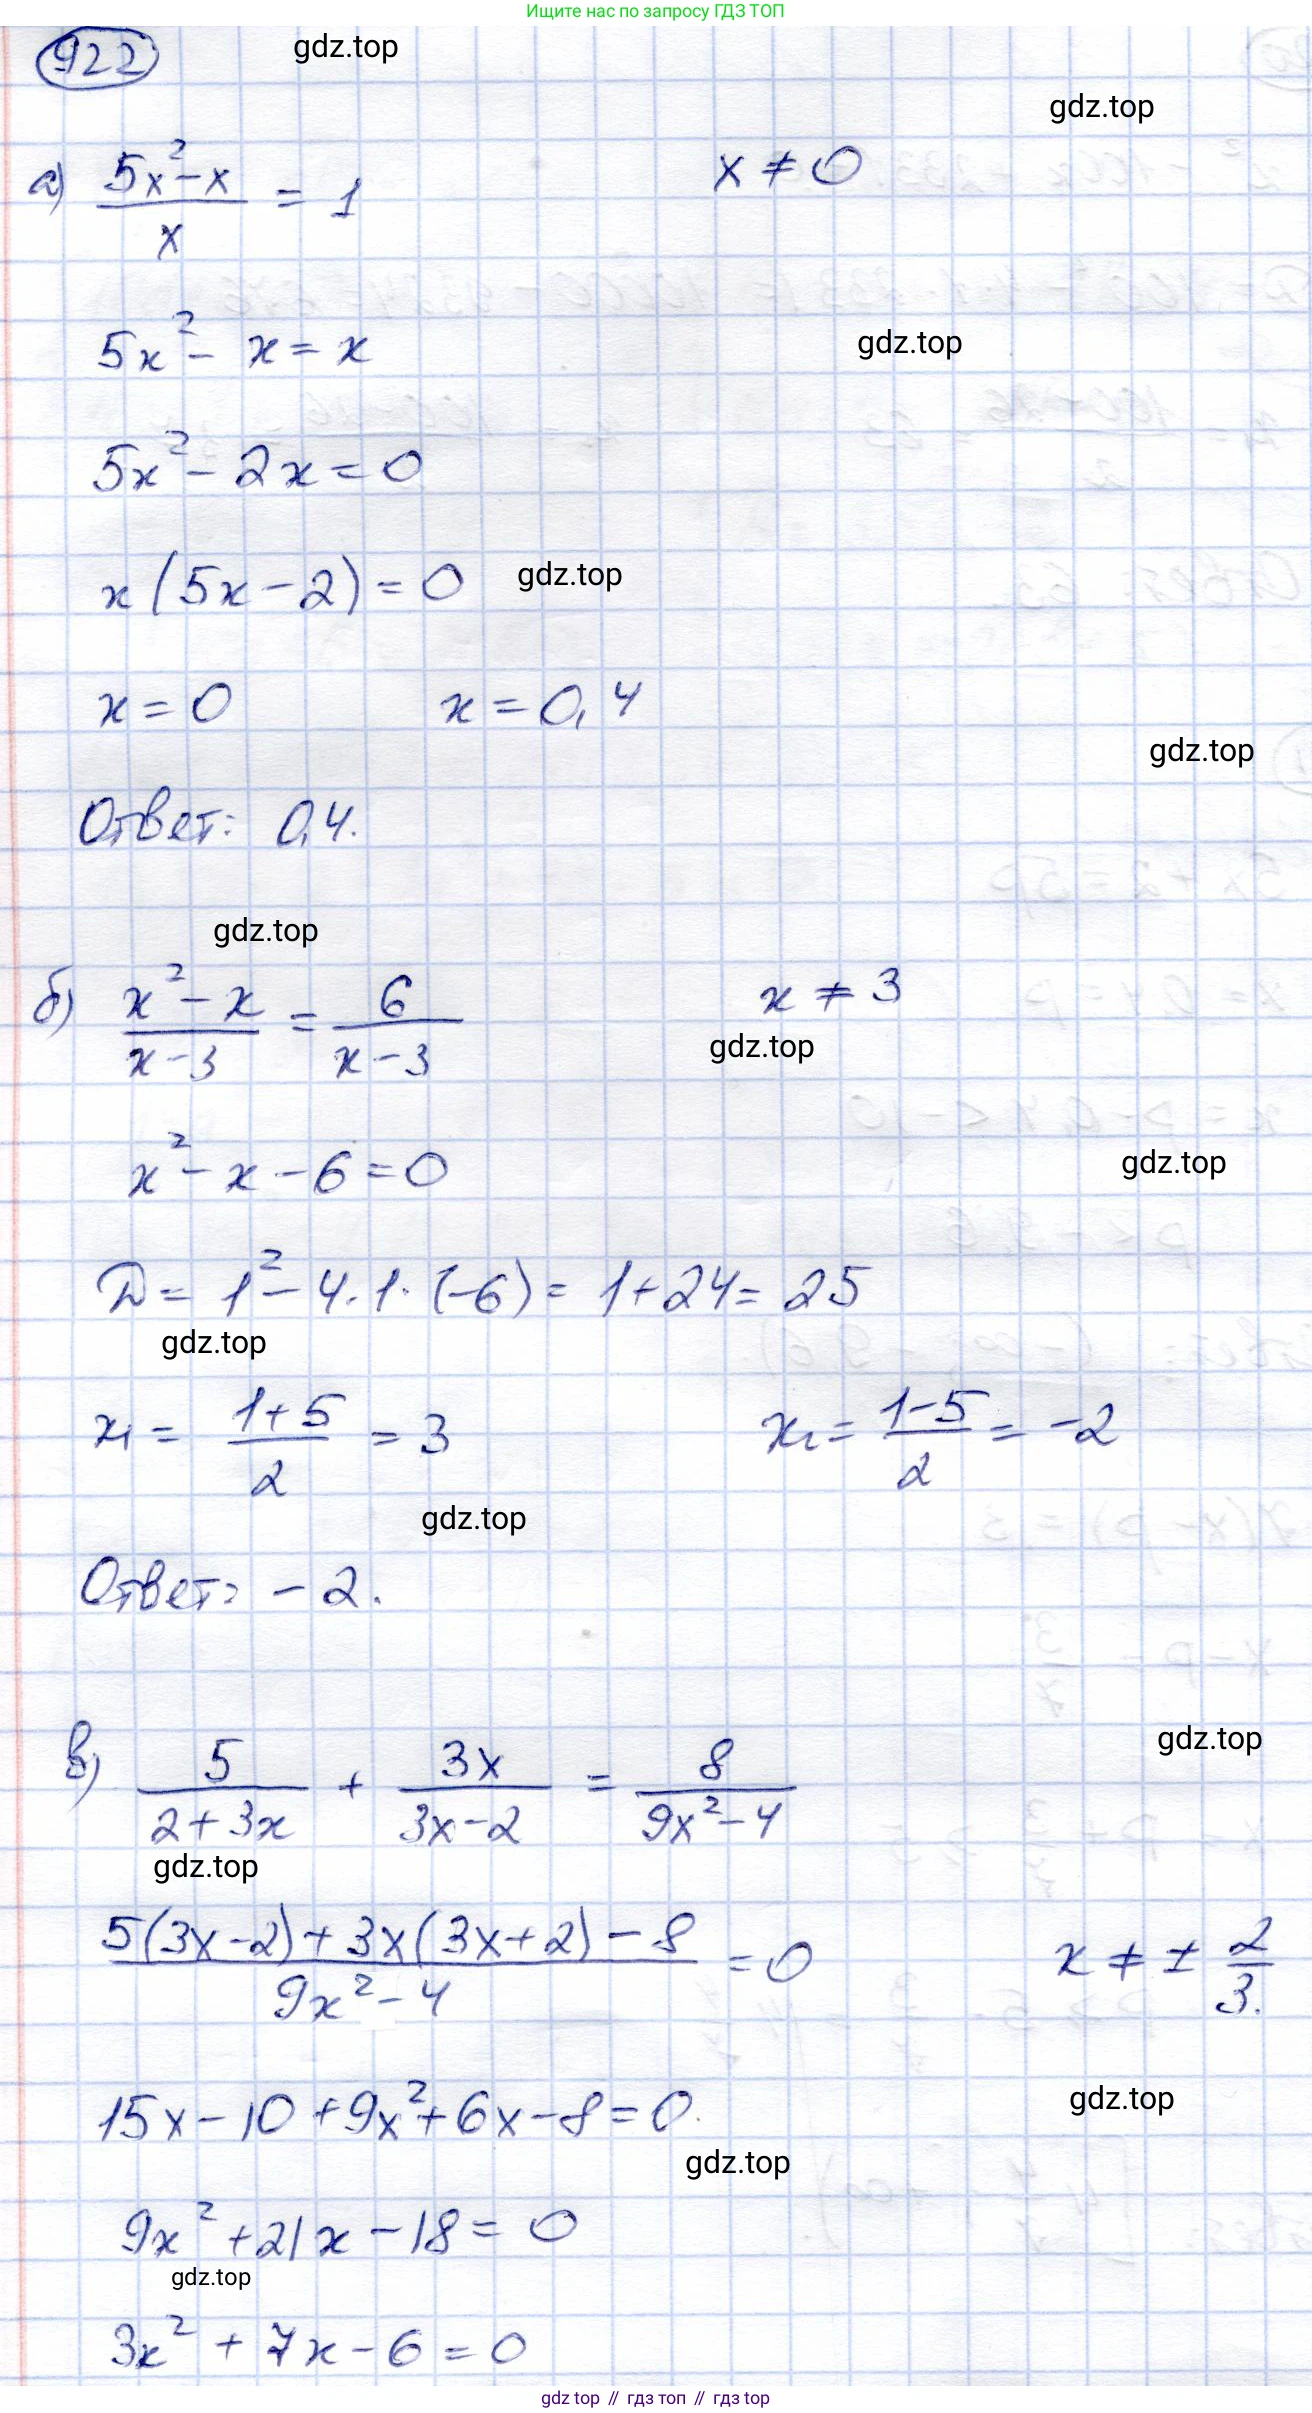 Ищите нас по запросу ГДЗ ТОП
922
gdz.top
gdz.top
а) (5x² - x)/x = 1    x ≠ 0
5x² - x = x
gdz.top
5x² - 2x = 0
x(5x - 2) = 0
gdz.top
x = 0    x = 0,4
gdz.top
Ответ: 0,4.
gdz.top
б) (x² - x)/(x - 3) = 6/(x - 3)    x ≠ 3
gdz.top
x² - x - 6 = 0
gdz.top
D = 1² - 4·1·(-6) = 1 + 24 = 25
gdz.top
x₁ = (1 + 5)/2 = 3    x₂ = (1 - 5)/2 = -2
gdz.top
Ответ: -2.
gdz.top
в) 5/(2 + 3x) + 3x/(3x - 2) = 8/(9x² - 4)
gdz.top
(5(3x - 2) + 3x(3x + 2) - 8)/(9x² - 4) = 0    x ≠ ± 2/3.
gdz.top
15x - 10 + 9x² + 6x - 8 = 0.
gdz.top
9x² + 21x - 18 = 0
gdz.top
3x² + 7x - 6 = 0
gdz top // гдз топ // гдз top